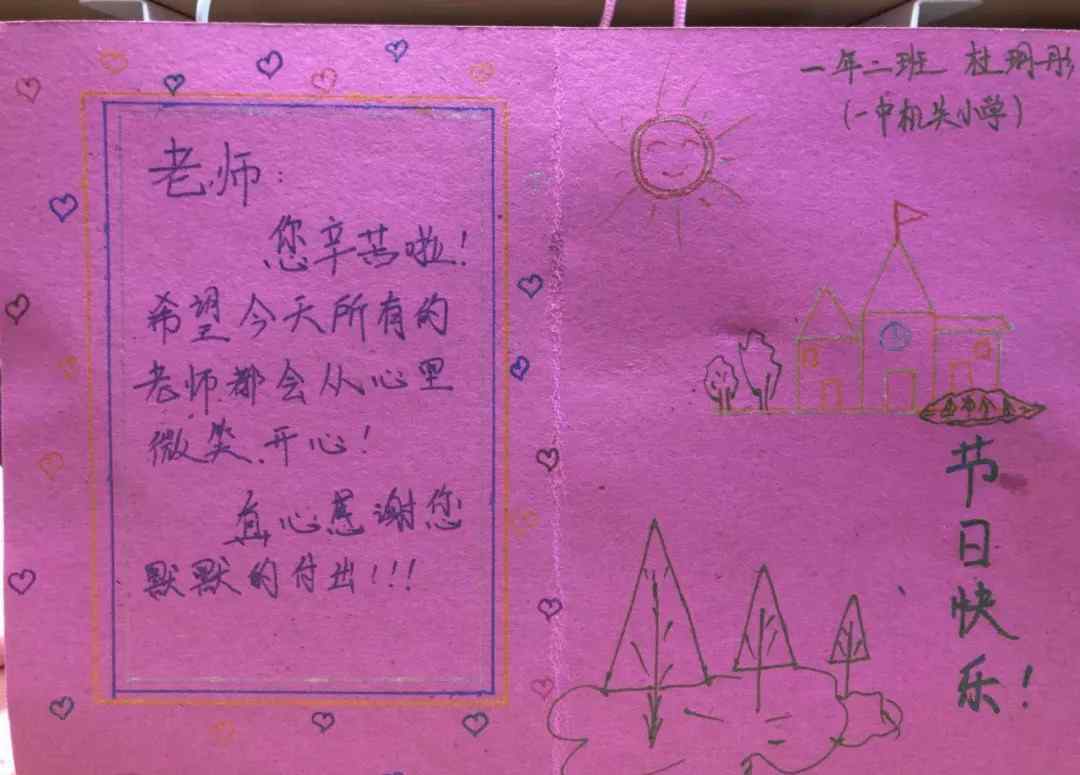 老师:
您辛苦啦!
希望今天所有的
老师都会从心里
微笑.开心!
真心感谢您
默默的付出!!!
一年二班 杜玥彤
(一中机关小学)
节
日
快
乐!